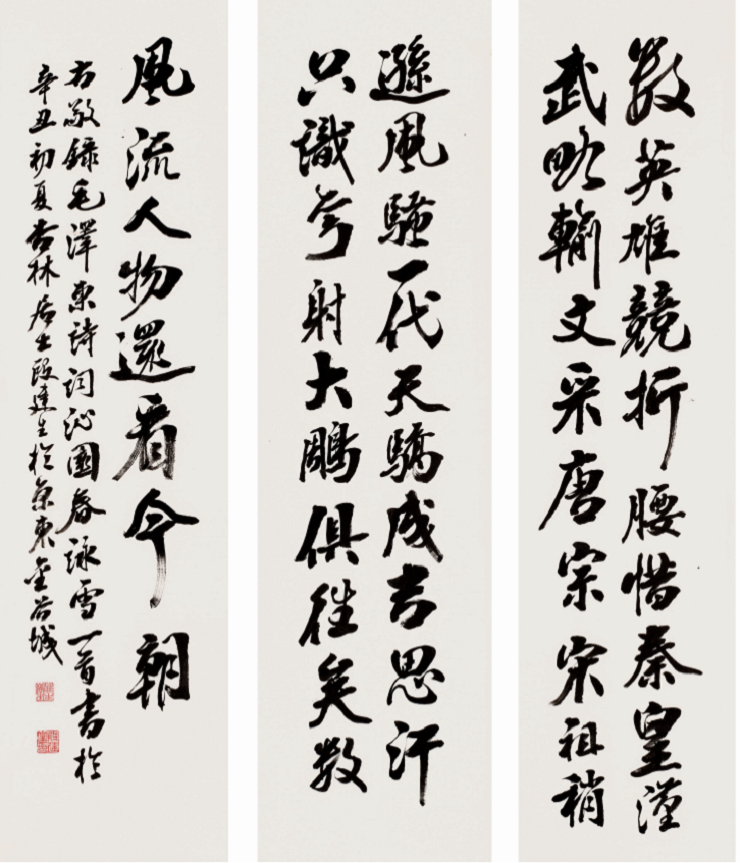 數英雄競折腰惜秦皇漢
武略輸文采唐宗宋祖稍
遜風騷一代天驕成吉思汗
只識彎射大鵰俱往矣數
風流人物還看今朝
右敬錄毛澤東詩詞沁園春詠雪一首書於
辛丑初夏杏林居士段建生於京東金谷城